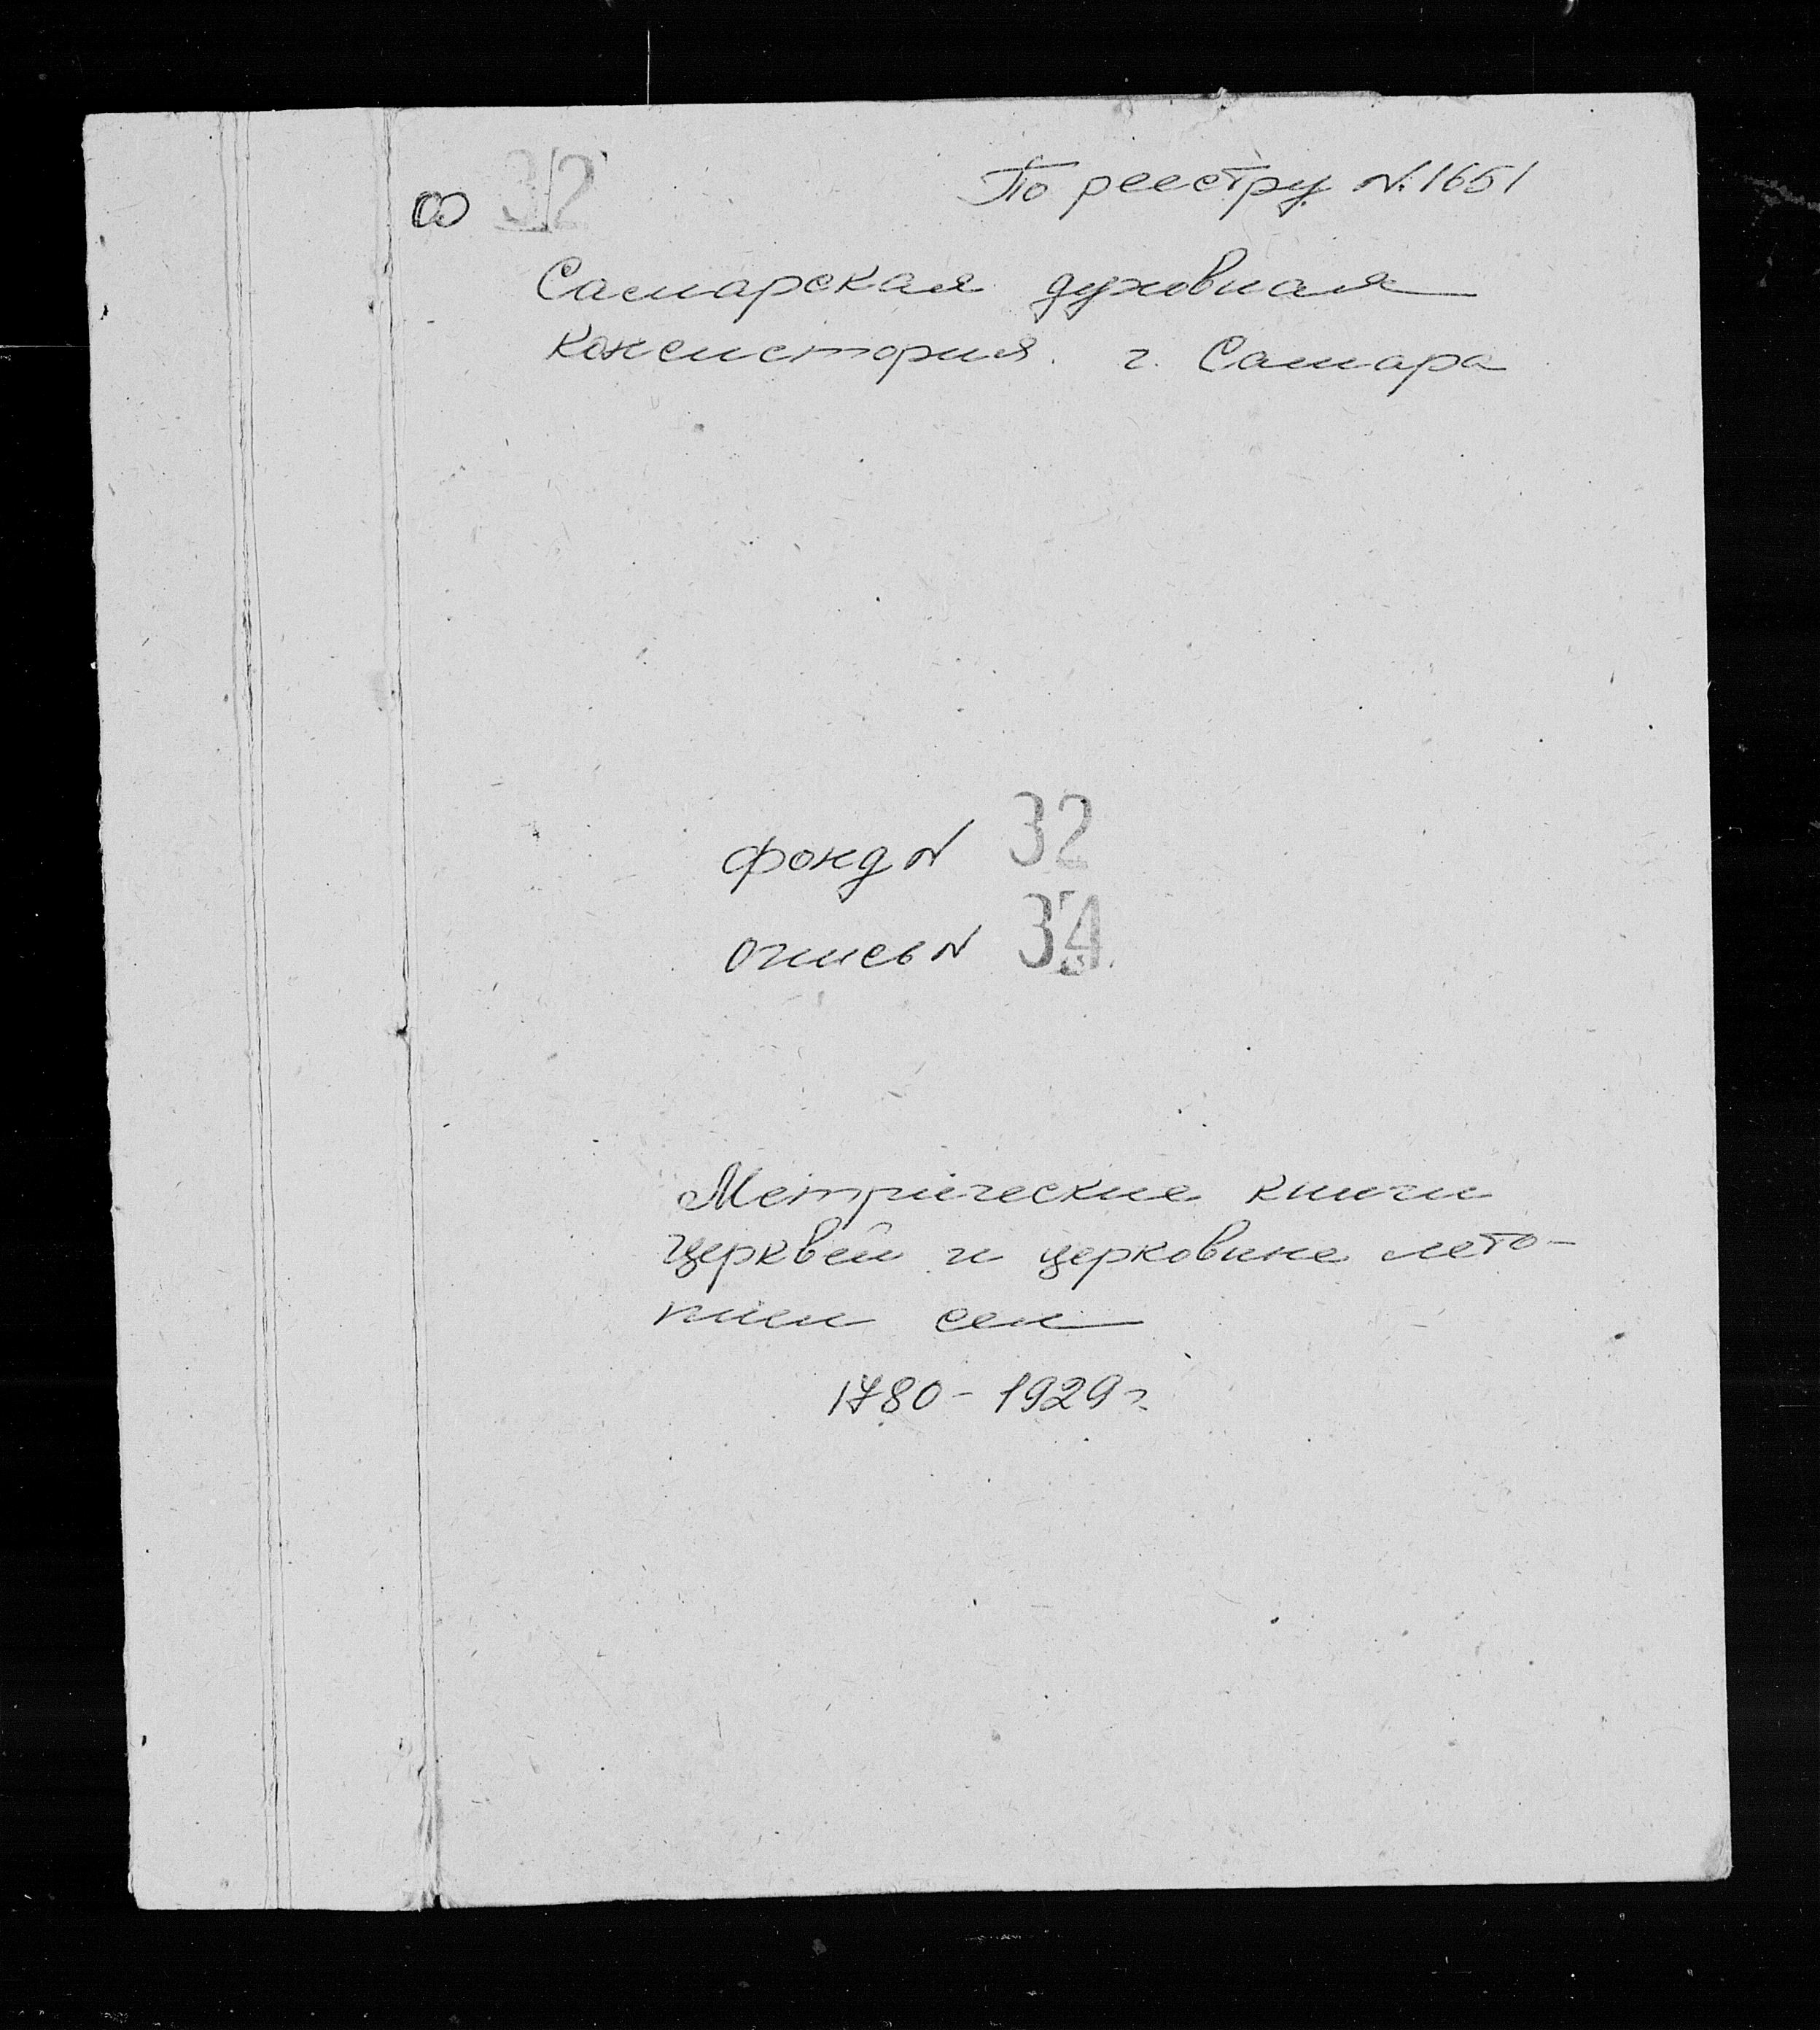 По реестру №.1651
32
Самарская духовная
Консистория. г. Самара
фонд № 32
опись №
Метрические книги
церквей и церковные лето-
писи сел
1780 - 1929 г.